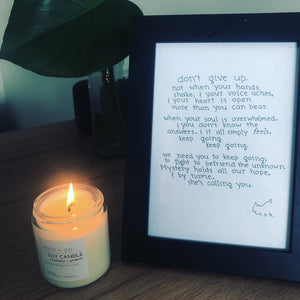 don't give up.
not when your hands
shake, & your voice aches,
& your heart is open
more than you can bear.
when your soul is overwhelmed,
& you don't know the
answers, & it all simply feels,
keep going.
keep going.
we need you to keep going;
to fight to befriend the unknown.
Mystery holds all our hope,
& by name,
she's calling you.
SOY CANDLE